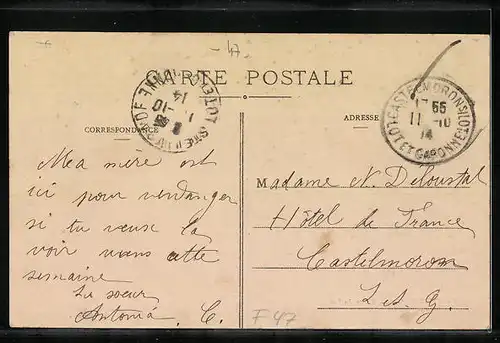 47.
CARTE POSTALE
CASTELMORON S LOT
17 55
11 -10
14
LOT ET GARONNE
ADRESSE
CORRESPONDANCE
Ma mere est
ici pour vendanger
si tu veux la
voir viens cette
semaine
Ta soeur
Antonia C.
Madame N. Deloustal
Hôtel de France
Castelmoron
L. et G.
F 47